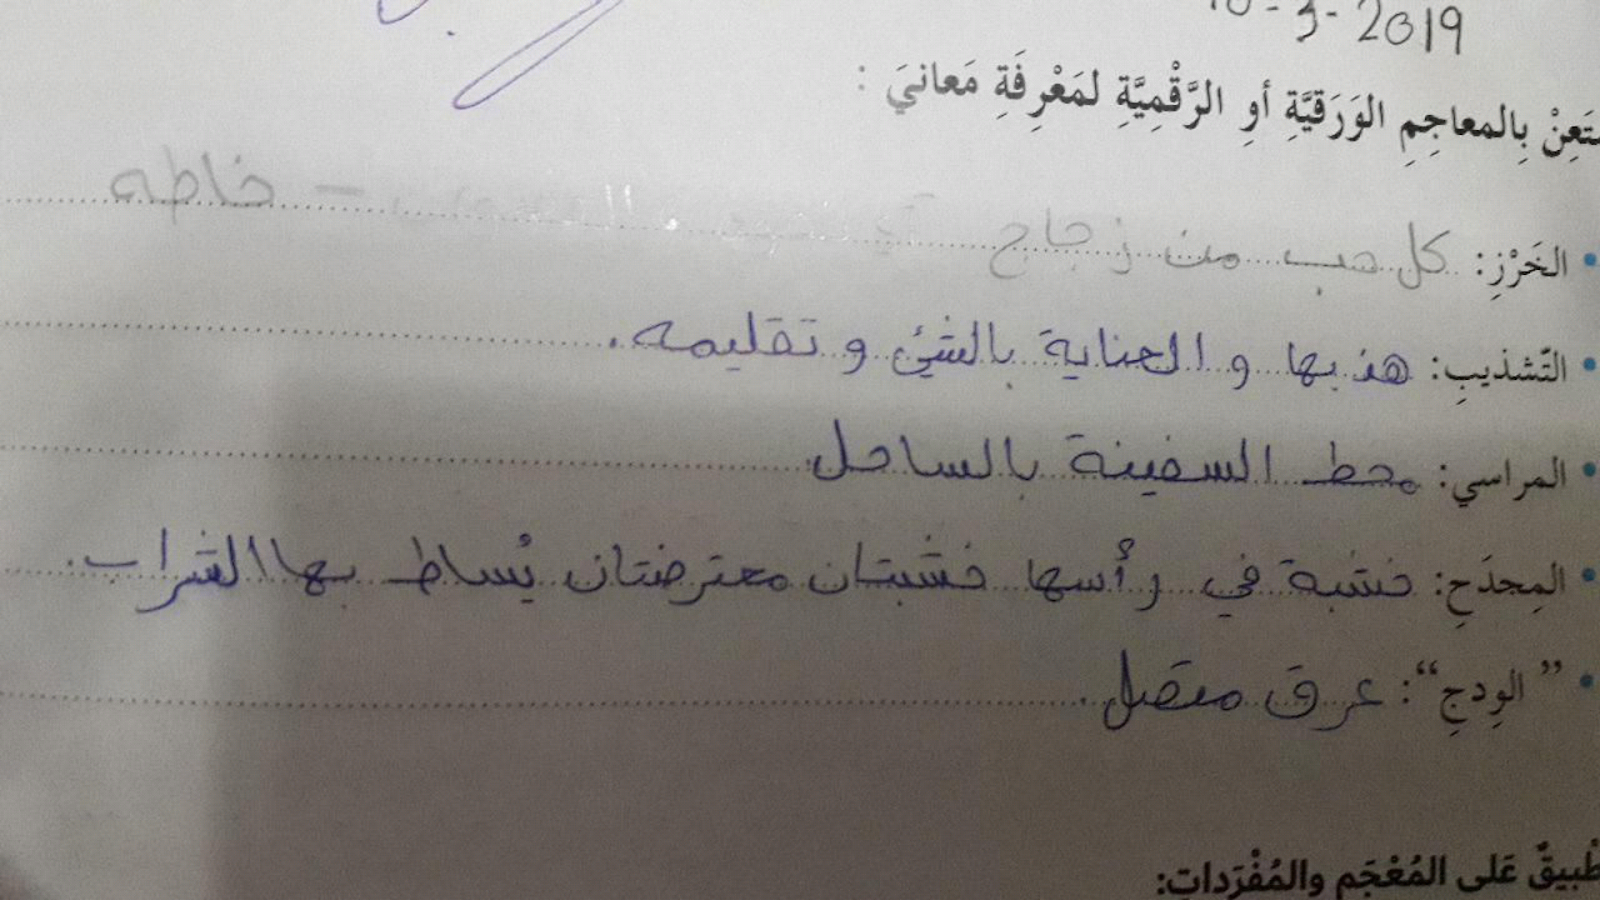 2019
بِالمعاجِمِ الوَرَقيَّةِ أوِ الرَّقْمِيَّةِ لمَعْرِفَةِ مَعانيَ :
• الخَرْزِ: كل حب من زجاج – خاطه
• التّشذيبِ: هذبها و العناية بالشئ و تقليمه.
• المراسي: محط السفينة بالساحل
• المِجدَحِ: خشبة في رأسها خشبتان معترضتان يُساط بها الشراب.
• ”الوِدجِ“: عرق متصل.
عَلى المُعْجَمِ والمُفْرَداتِ: